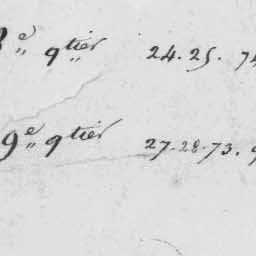 8e qtier 24. 25. 7
9e qtier 27. 28. 73.